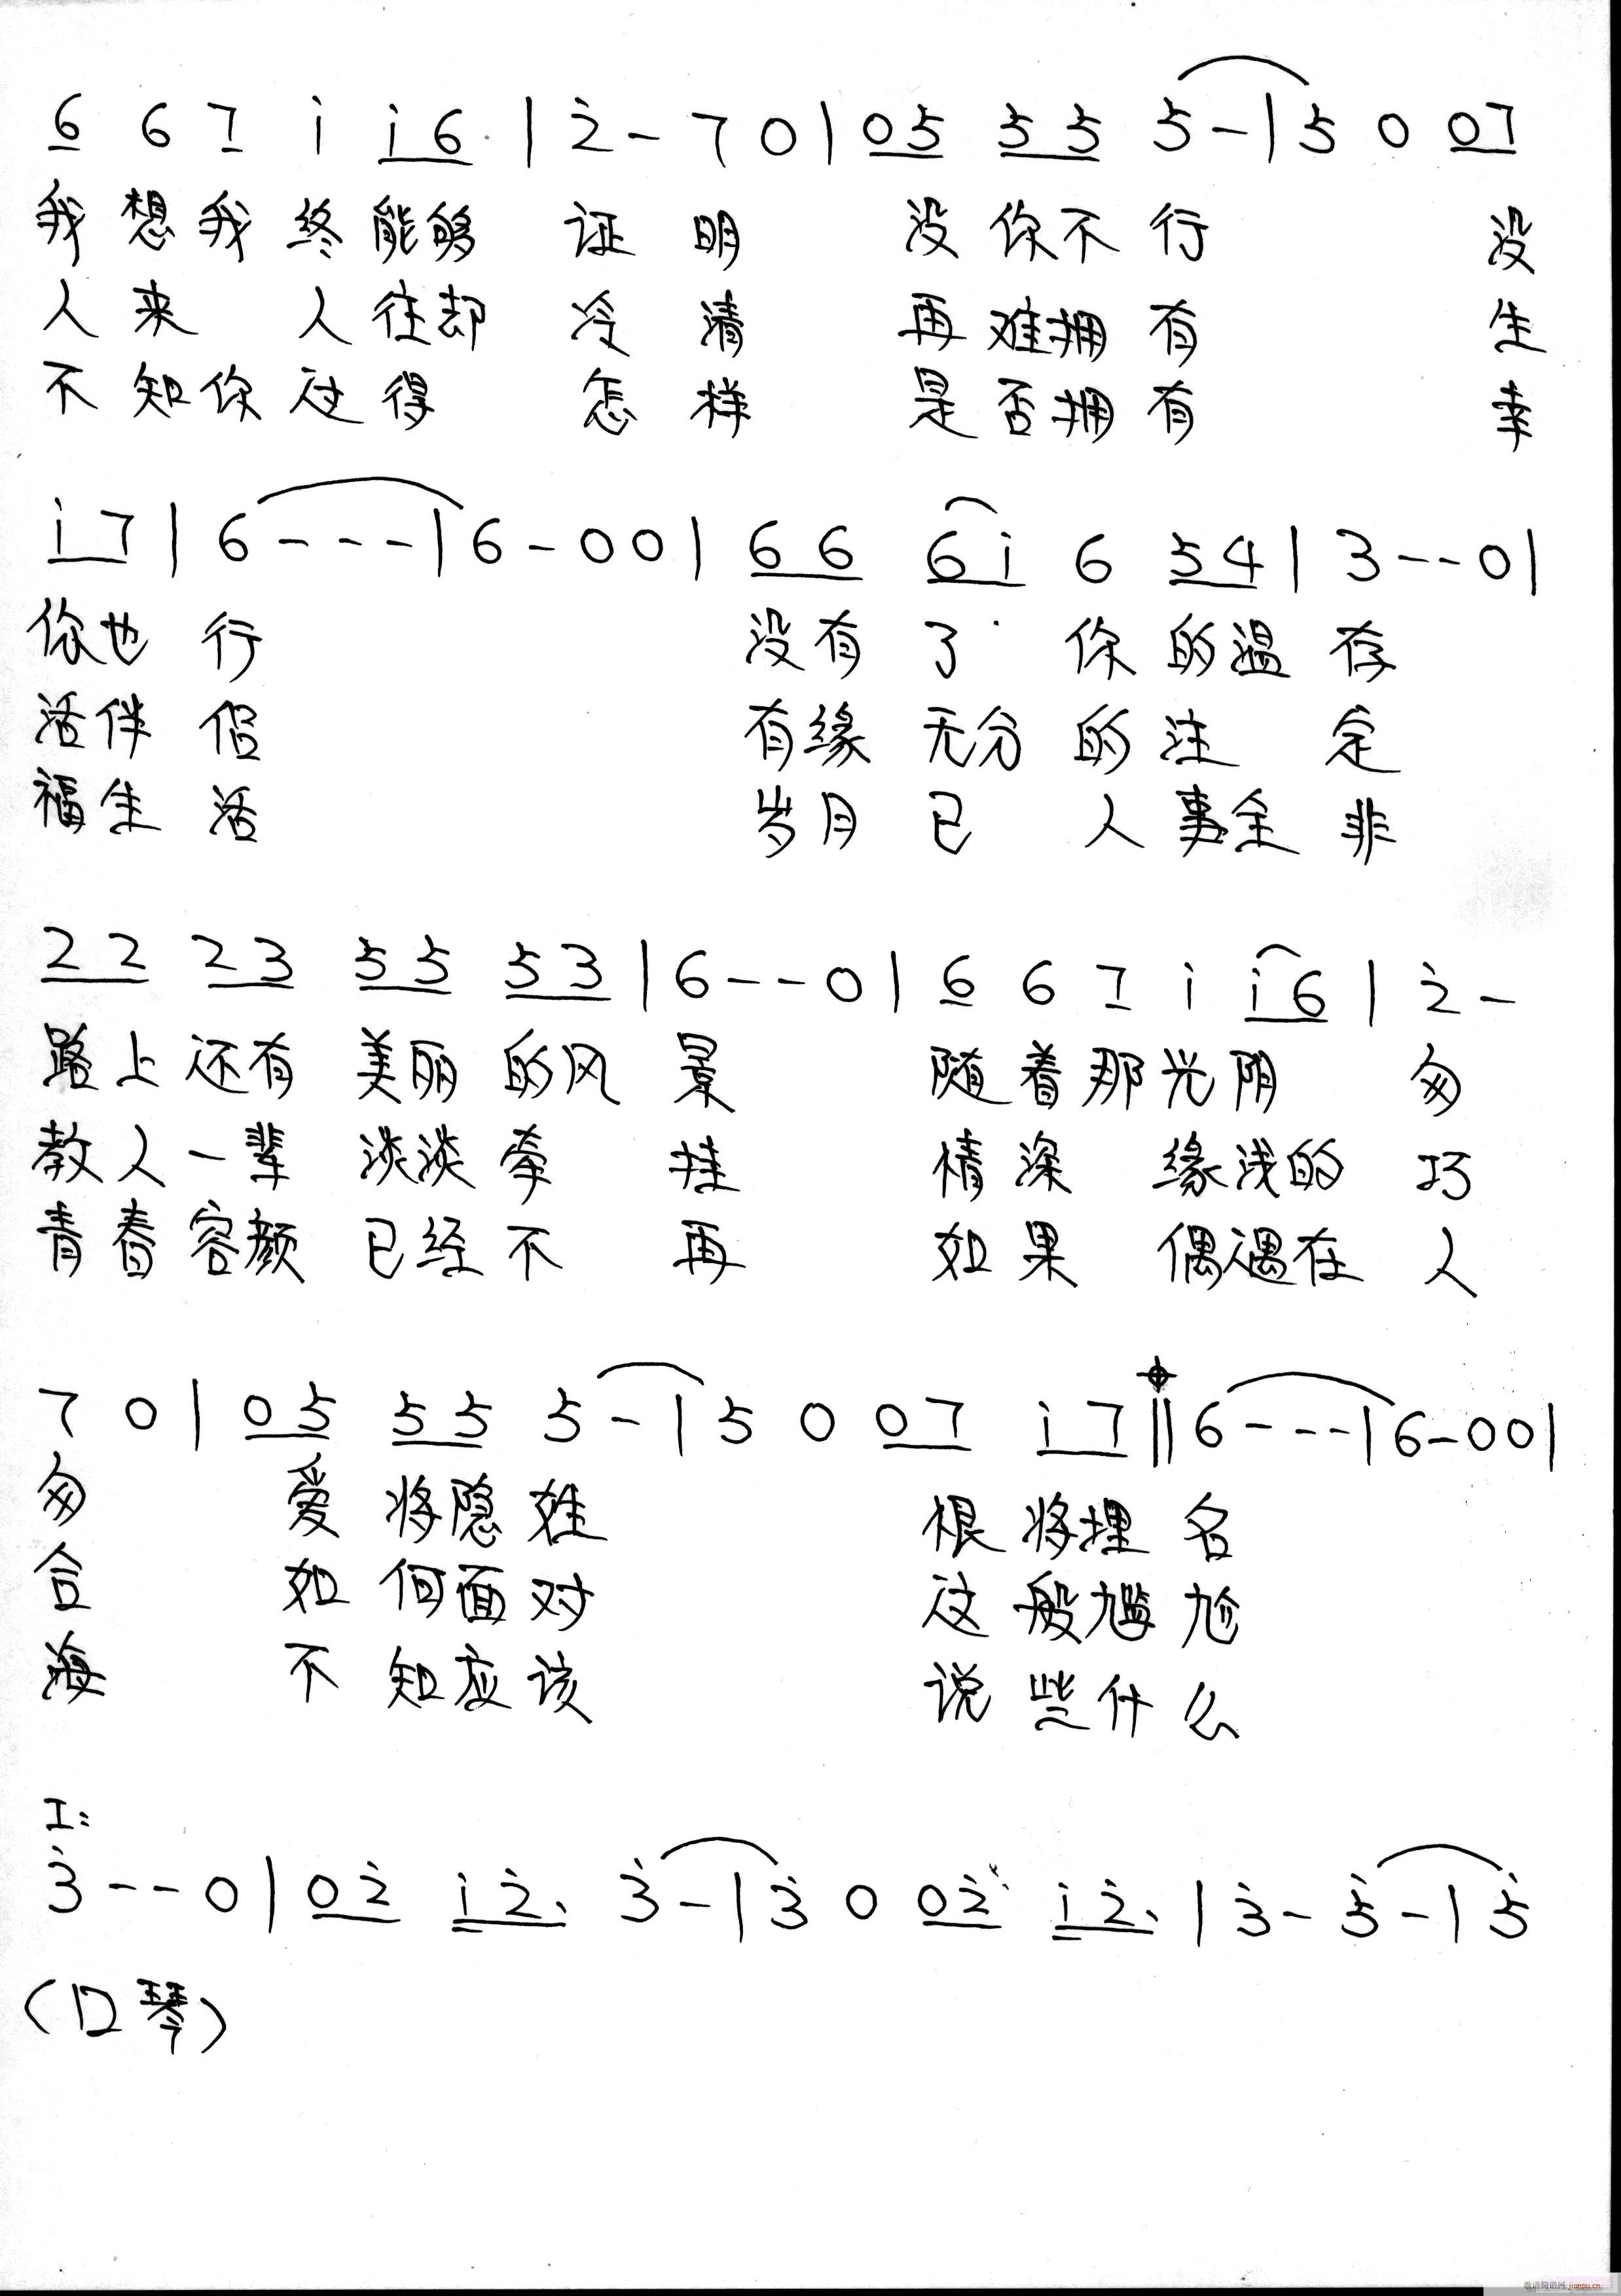 6 6 7 i i 6 | 2 - 7 0 | 0 5 5 5 5 - | 5 0 0 7
我想我终能够 证明 没你不行 没
人来 人往却 冷清 再难拥有 生
不知你过得 怎样 是否拥有 幸
i 7 | 6 - - - | 6 - 0 0 | 6 6 6 i 6 5 4 | 3 - - 0 |
你也行 没有了 你的温存
活伴侣 有缘无分的注 定
福生活 岁月已 人事全非
2 2 2 3 5 5 5 3 | 6 - - 0 | 6 6 7 i i 6 | 2 -
路上还有美丽的风景 随着那光阴 匆
教人一辈 淡淡牵 挂 情深 缘浅的 巧
青春容颜 已经不 再 如果 偶遇在 人
7 0 | 0 5 5 5 5 - | 5 0 0 7 i 7 || 6 - - - | 6 - 0 0 |
匆 爱将隐姓 根将埋名
合 如何面对 这般尴尬
海 不知应该 说些什么
I:
3 - - 0 | 0 2 i 2. 3 - | 3 0 0 2 i 2. | 3 - 5 - | 5
(口琴)
歌谱简谱网 jianpu.cn